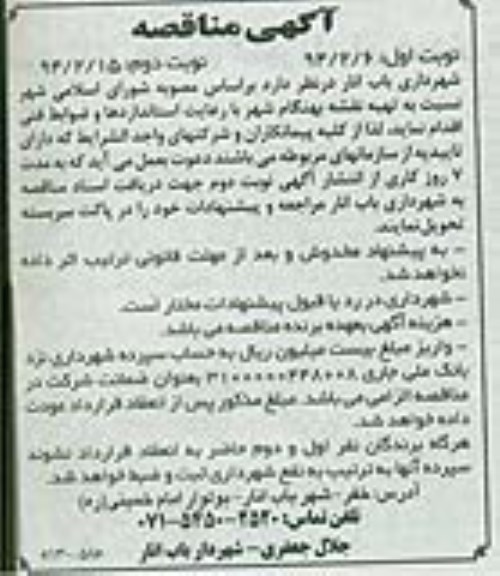 آگهی مناقصه
نوبت اول: ۹۴/۲/۶ نوبت دوم: ۹۴/۲/۱۵
شهرداری باب انار درنظر دارد براساس مصوبه شورای اسلامی شهر
نسبت به تهیه نقشه بهنگام شهر با رعایت استانداردها و ضوابط فنی
اقدام نماید، لذا از کلیه پیمانکاران و شرکتهای واجد الشرایط که دارای
تاییدیه از سازمانهای مربوطه می باشند دعوت بعمل می آید که به مدت
۷ روز کاری از انتشار آگهی نوبت دوم جهت دریافت اسناد مناقصه
به شهرداری باب انار مراجعه و پیشنهادات خود را در پاکت سربسته
تحویل نمایند.
- به پیشنهاد مخدوش و بعد از مهلت قانونی ترتیب اثر داده
نخواهد شد.
- شهرداری در رد یا قبول پیشنهادات مختار است.
- هزینه آگهی بعهده برنده مناقصه می باشد.
- واریز مبلغ بیست میلیون ریال به حساب سپرده شهرداری نزد
بانک ملی جاری بعنوان ضمانت شرکت در
مناقصه الزامی می باشد. مبلغ مذکور پس از انعقاد قرارداد عودت
داده خواهد شد.
هرگاه برندگان نفر اول و دوم حاضر به انعقاد قرارداد نشوند
سپرده آنها به ترتیب به نفع شهرداری ثبت و ضبط خواهد شد.
آدرس: خفر - شهر باب انار - بولوار امام خمینی (ره)
تلفن تماس: ۲۵۲۰-۵۴۵۰-۰۷۱
جلال جعفری - شهردار باب انار